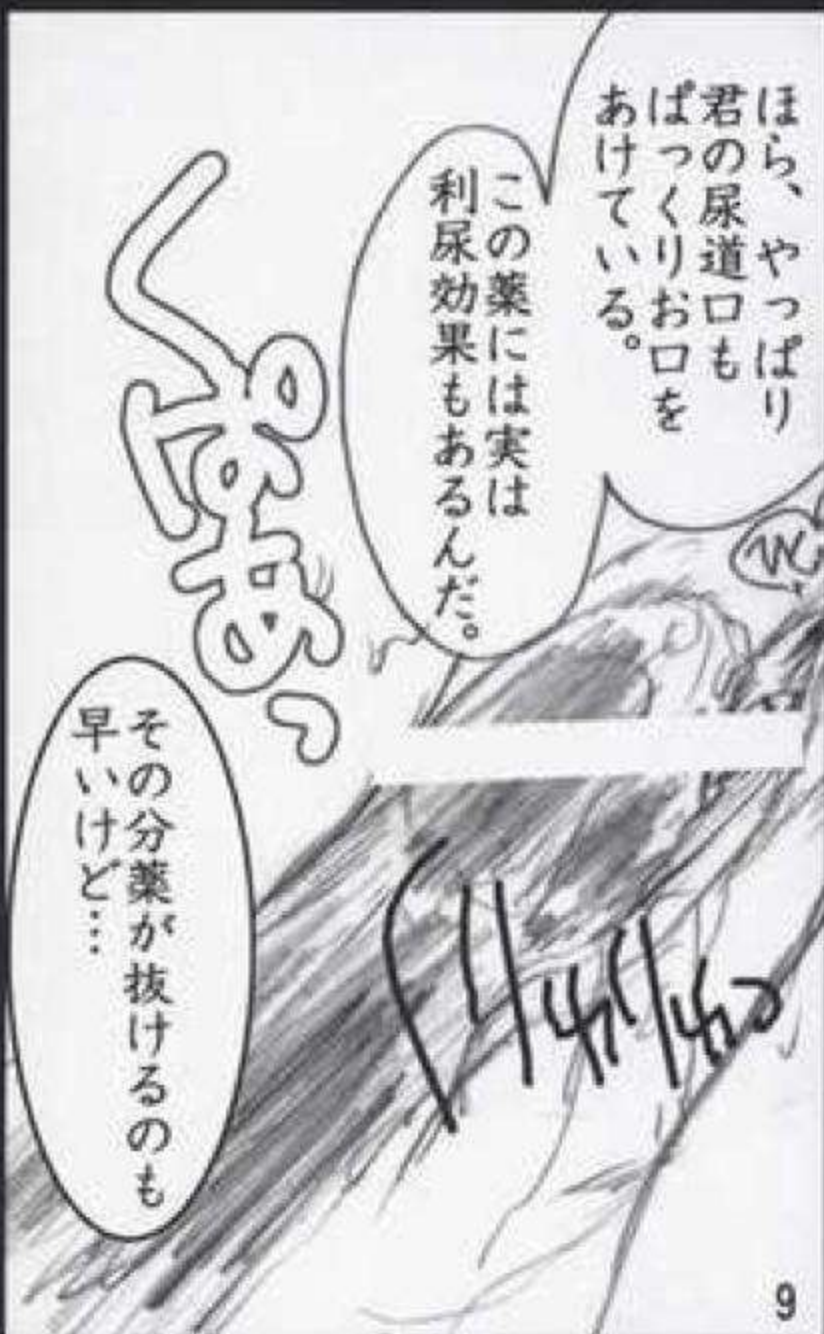 ほら、やっぱり
君の尿道口も
ぱっくりお口を
あけている。
この薬には実は
利尿効果もあるんだ。
くぱぁっ
その分薬が抜けるのも
早いけど…
9